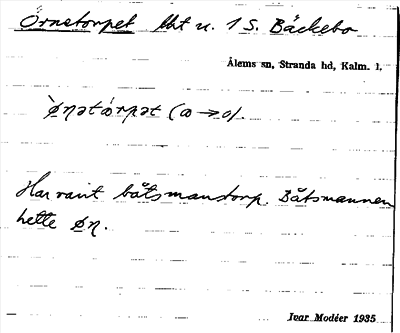 Örnetorpet lht u. 1 S. Bäckebo
Ålems sn, Stranda hd, Kalm. l.
`ø̨ɳətórpət (ɷ→o).
Har varit båtsmanstorp. Båtsmannen
hette øɳ.
Ivar Modéer 1935